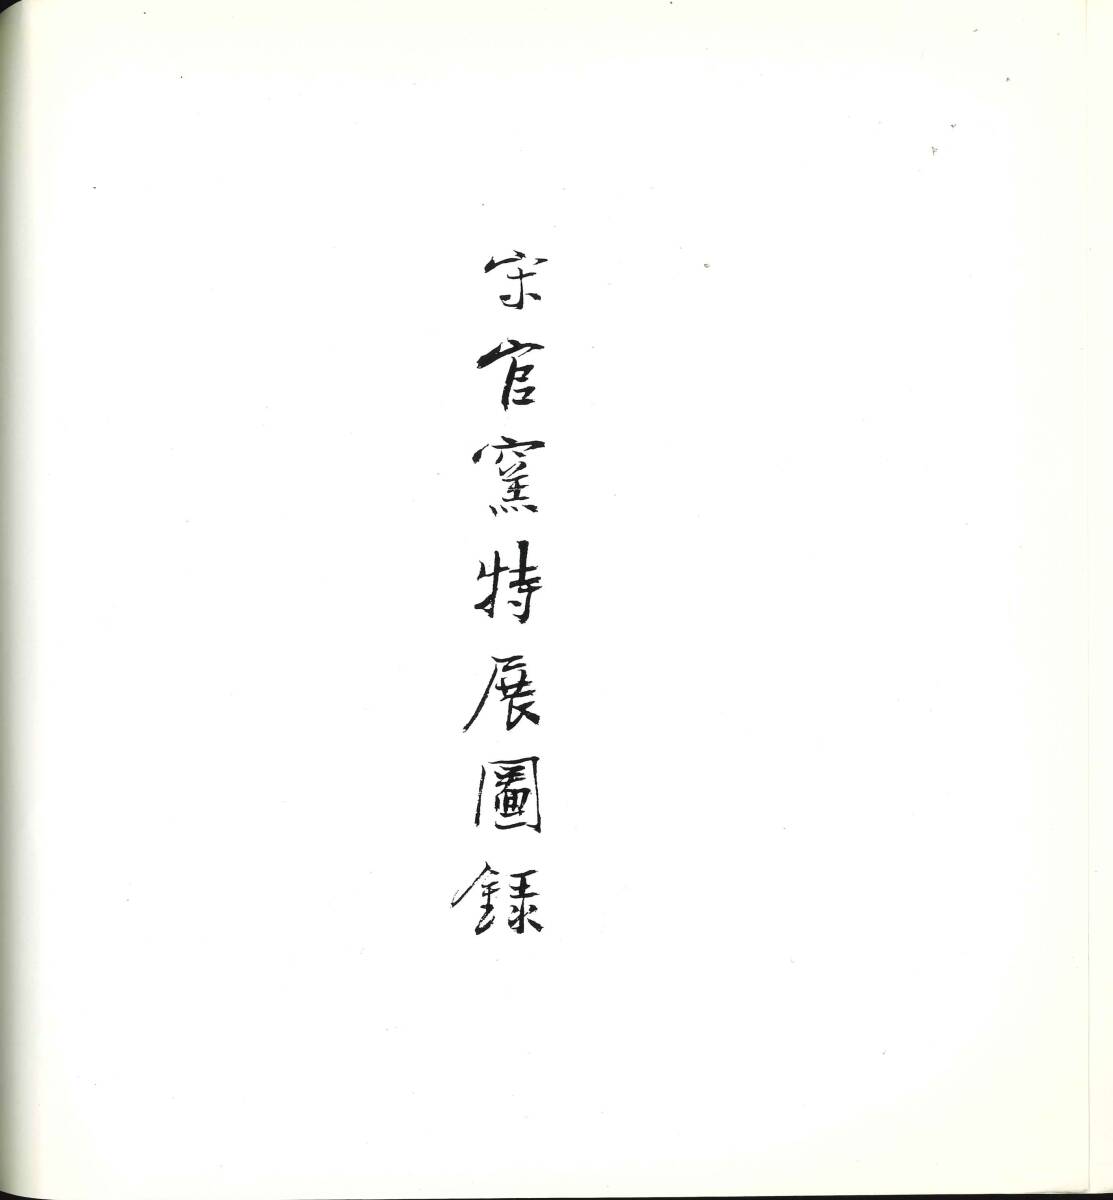 宋官窯特展圖錄